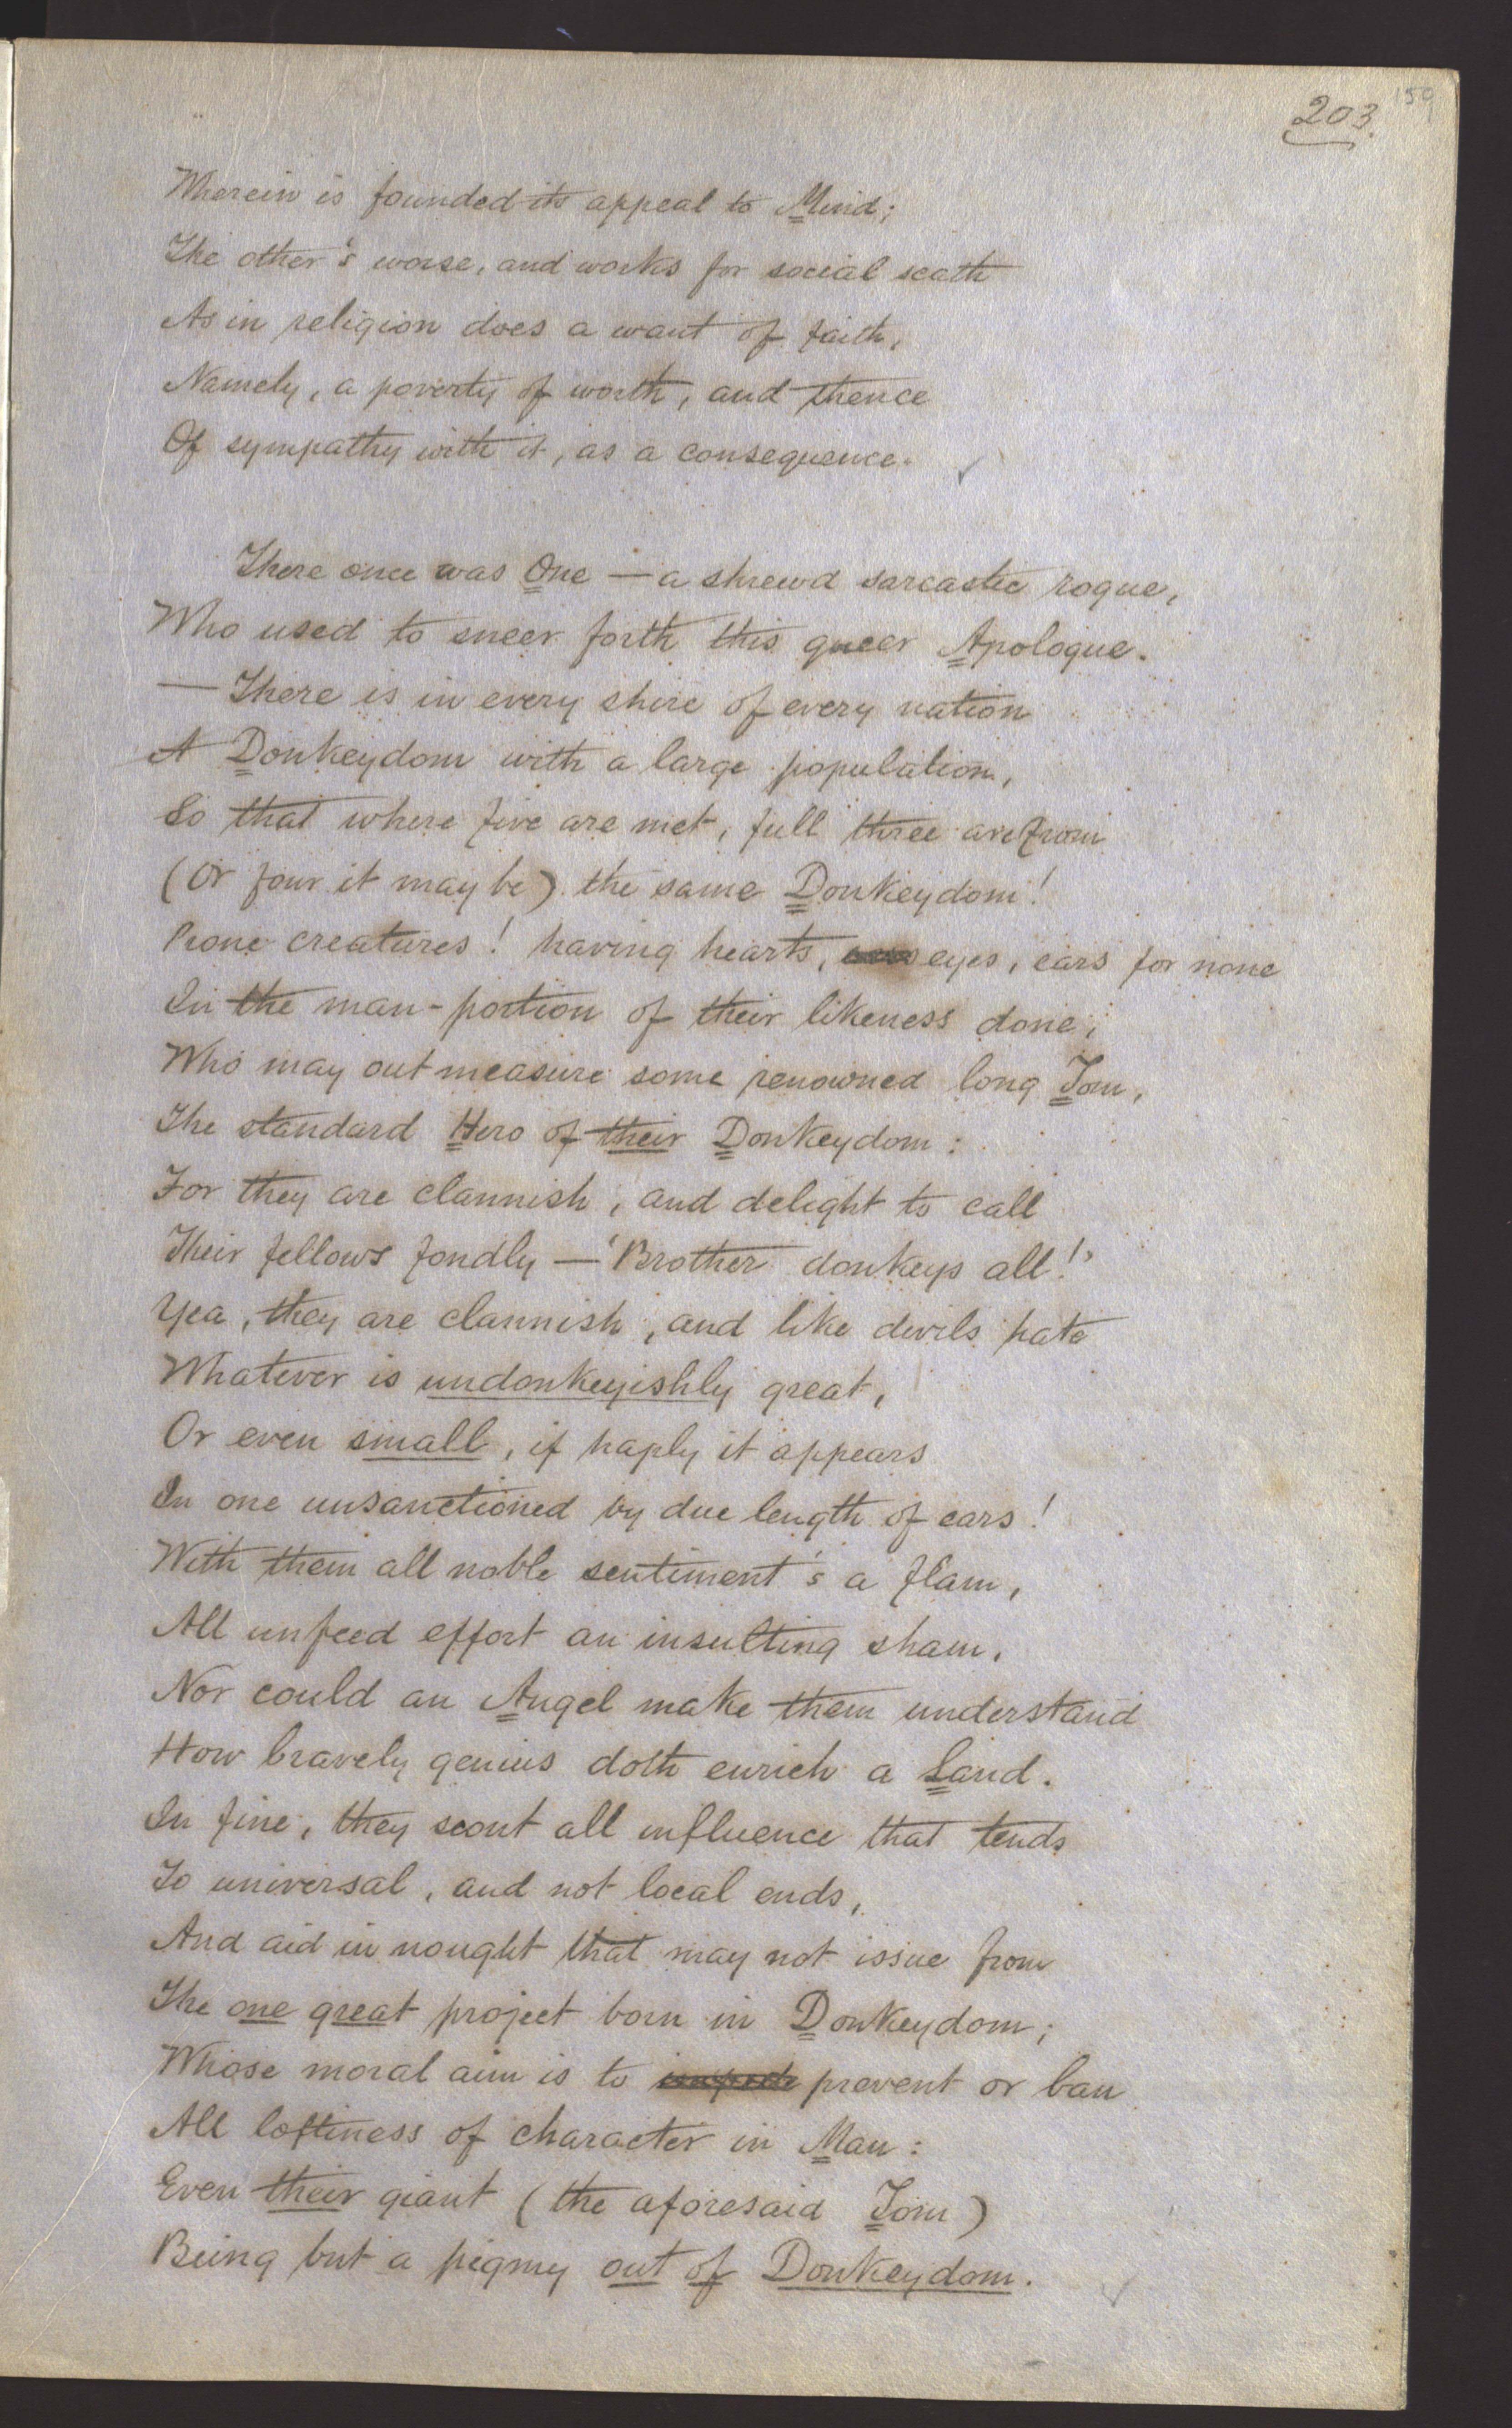 203.
159
Wherein is founded its appeal to Mind;
The other's worse, and works for social scath
As in religion does a want of faith,
Namely, a poverty of worth, and thence
Of sympathy with it, as a consequence.
There once was One — a shrewd sarcastic rogue,
Who used to sneer forth this queer Apologue.
— There is in every shire of every nation
A Donkeydom with a large population,
So that where five are met, full three are from
(Or four it may be) the same Donkeydom!
Prone creatures! having hearts, eyes, ears for none
In the man-portion of their likeness done;
Who may outmeasure some renowned long Tom,
The standard Hero of their Donkeydom:
For they are clannish, and delight to call
Their fellows fondly — 'Brother donkeys all!'
Yea, they are clannish, and like devils hate
Whatever is undonkeyishly great,
Or even small, if haply it appears
In one unsanctioned by due length of ears!
With them all noble sentiment's a flam,
All unfeed effort an insulting sham.
Nor could an Angel make them understand
How bravely genius doth enrich a Land.
In fine, they scout all influence that tends
To universal, and not local ends,
And aid in nought that may not issue from
The one great project born in Donkeydom;
Whose moral aim is to impede prevent or ban
All loftiness of character in Man:
Even their giant (the aforesaid Tom)
Being but a pigmy out of Donkeydom.